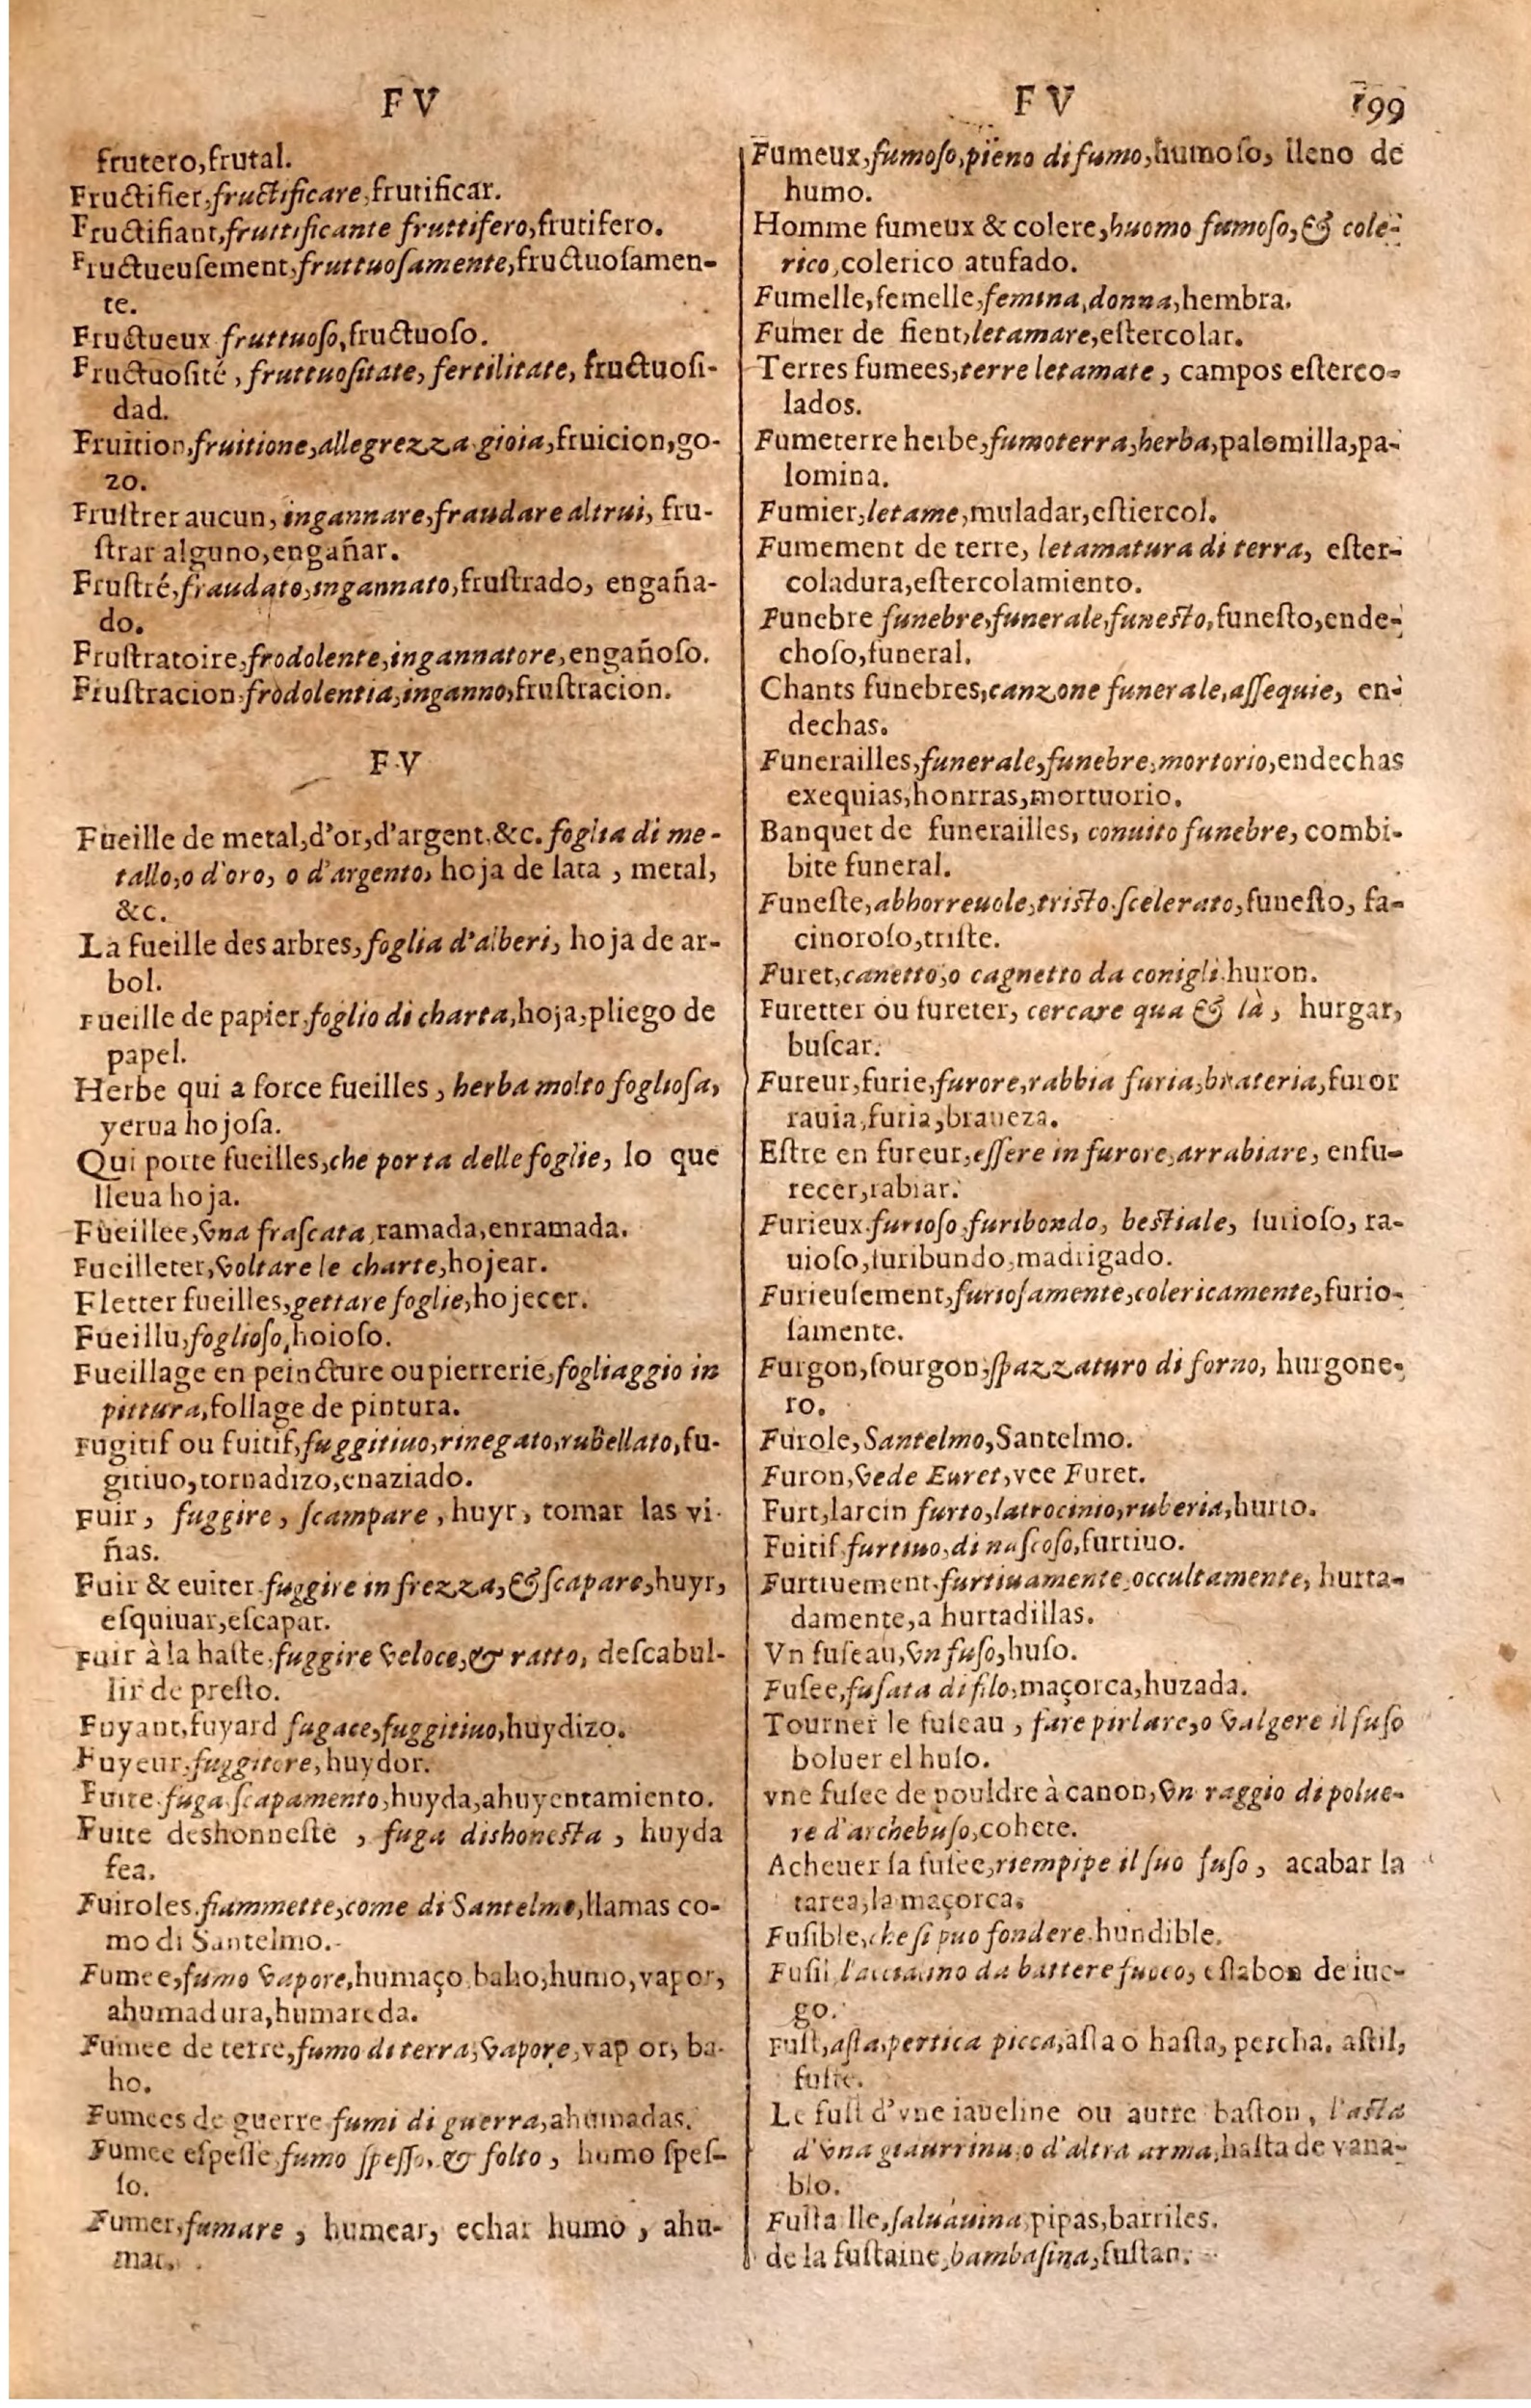 F V
frutero,frutal.
Fructifier,fructificare,frutificar.
Fructifiant,fruttificante fruttifero,frutifero.
Fructueuſement,fruttuoſamente,fructuoſamen-
te.
Fructueux fruttuoſo,fructuoſo.
Fructuoſité , fruttuoſitate, fertilitate, fructuoſi-
dad.
Fruition,fruitione,allegrezza gioia,fruicion,go-
zo.
Fruſtrer aucun, ingannare,fraudare altrui, fru-
ſtrar alguno,engañar.
Fruſtré,fraudato,ingannato,fruſtrado, engaña-
do.
Fruſtratoire,frodolente,ingannatore,engañoſo.
Fruſtracion,frodolentia,inganno,fruſtracion.
F V
Fueille de metal,d'or,d'argent,&c. foglia di me-
tallo,o d'oro, o d'argento, hoja de lata , metal,
&c.
La fueille des arbres,foglia d'alberi, hoja de ar-
bol.
Fueille de papier,foglio di charta,hoja,pliego de
papel.
Herbe qui a force fueilles , herba molto fogliosa,
yerua hojoſa.
Qui porte fueilles,che porta delle foglie, lo que
lleua hoja.
Fueillee,vna fraſcata,ramada,enramada.
Fueilleter,voltare le charte,hojear.
Fletter fueilles,gettare foglie,hojecer.
Fueillu,foglioſo,hoioſo.
Fueillage en peincture ou pierrerie,fogliaggio in
pittura,follage de pintura.
Fugitif ou fuitif,fuggitiuo,rinegato,rubellato,fu-
gitiuo,tornadizo,enaziado.
Fuir , fuggire , ſcampare , huyr, tomar las vi-
ñas.
Fuir & euiter.fuggire in frezza,& ſcapare,huyr,
eſquiuar,eſcapar.
Fuir à la haſte,fuggire veloce,& ratto, deſcabul-
lir de preſto.
Fuyant,fuyard fugace,fuggitiuo,huydizo.
Fuyeur,fuggitore,huydor.
Fuite.fuga.ſcapamento,huyda,ahuyentamiento.
Fuite deshonneſte , fuga dishoneſta , huyda
fea.
Fuiroles.fiammette,come di Santelmo,llamas co-
mo di Santelmo.
Fumee,fumo vapore,humaço,baho,humo,vapor,
ahumadura,humareda.
Fumee de terre,fumo di terra,vapore,vap or, ba-
ho.
Fumees de guerre fumi di guerra,ahumadas.
Fumee eſpeſſe fumo ſpeſſo, & folto , humo ſpeſ-
ſo.
Fumer,fumare , humear, echar humo , ahu-
mar.
F V 199
Fumeux,fumoſo,pieno di fumo,humoſo, lleno de
humo.
Homme fumeux & colere,huomo fumoſo,& cole-
rico,colerico atufado.
Fumelle,femelle,femina,donna,hembra.
Fumer de fient,letamare,eſtercolar.
Terres fumees,terre letamate , campos eſterco-
lados.
Fumeterre herbe,fumoterra,herba,palomilla,pa-
lomina.
Fumier,letame,muladar,eſtiercol.
Fumement de terre, letamatura di terra, eſter-
coladura,eſtercolamiento.
Funebre funebre,funerale,funeſto,funeſto,ende-
choſo,funeral.
Chants funebres,canzone funerale,aſſequie, en-
dechas.
Funerailles,funerale,funebre,mortorio,endechas
exequias,honrras,mortuorio.
Banquet de funerailles, conuito funebre, combi-
bite funeral.
Funeſte,abhorreuole,triſto.ſcelerato,funeſto, fa-
cinoroſo,triſte.
Furet,canetto,o cagnetto da conigli.huron.
Furetter ou fureter, cercare qua & là , hurgar,
buſcar.
Fureur,furie,furore,rabbia furia,braueria,furor
rauia,furia,braueza.
Eſtre en fureur,eſſere in furore,arrabiare, enfu-
recer,rabiar.
Furieux.furioſo.furibondo, beſtiale, furioſo, ra-
uioſo,furibundo,madrigado.
Furieuſement,furioſamente,colericamente,furio-
ſamente.
Furgon,fourgon,ſpazzaturo di forno, hurgone-
ro.
Furole,Santelmo,Santelmo.
Furon,vede Euret,vee Furet.
Furt,larcin furto,latrocinio,ruberia,hurto.
Fuitif,furtiuo,di naſcoſo,furtiuo.
Furtiuement.furtiuamente,occultamente, hurta-
damente,a hurtadillas.
Vn fuſeau,vn fuſo,huſo.
Fuſee,fuſata di filo,maçorca,huzada.
Tourner le fuſeau , fare pirlare,o valgere il fuſo
boluer el huſo.
vne fuſee de pouldre à canon,vn raggio di polue-
re d'archebuſo,cohete.
Acheuer ſa fuſee,riempipe il ſuo fuſo , acabar la
tarea,la maçorca.
Fuſible,che ſi puo fondere.hundible.
Fuſil, da battere fuoco, eſlabon de iue-
go.
Fuſt,aſta,pertica picca,aſta o haſta, percha. aſtil,
fuſte.
Le fuſt d'vne iaueline ou autre baſton, l'aſta
d'vna giaurrina,o d'altra arma,haſta de vana-
blo.
Fuſta lle,ſaluauina,pipas,barriles.
de la fuſtaine,bambaſina,fuſtan.